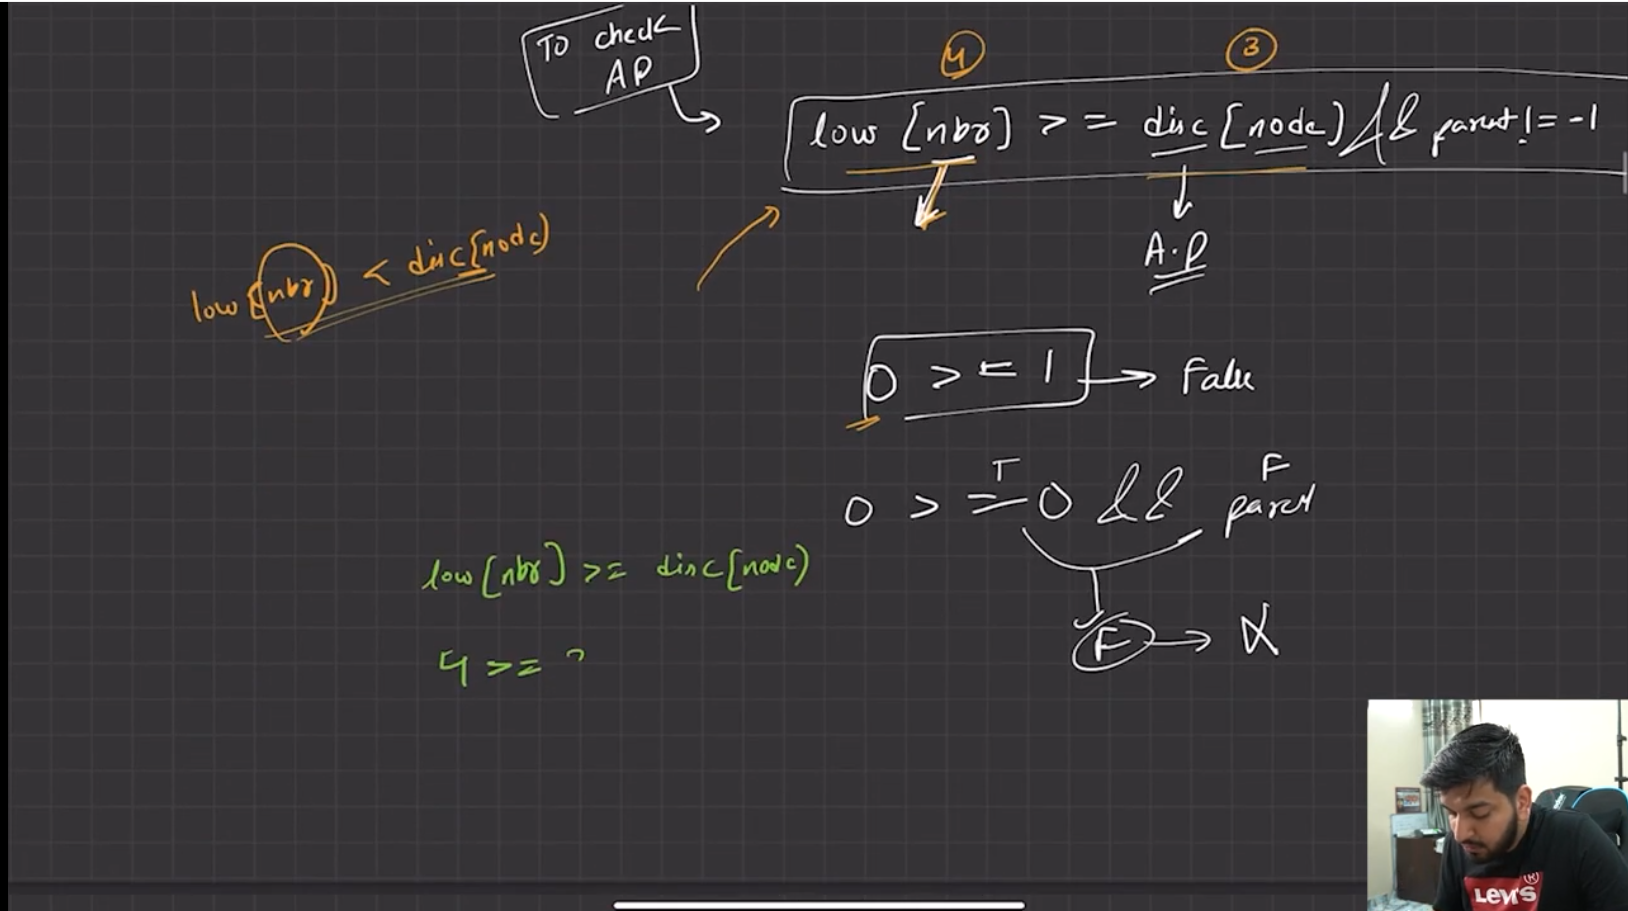 To check
AP
4
3
low [nbr] >= disc [node] && parent != -1
low [nbr] < disc[node]
A.P
0 >= 1 → False
T
F
0 >= 0 && parent
low [nbr] >= disc[node]
F → X
4 >= 3
LEVI'S